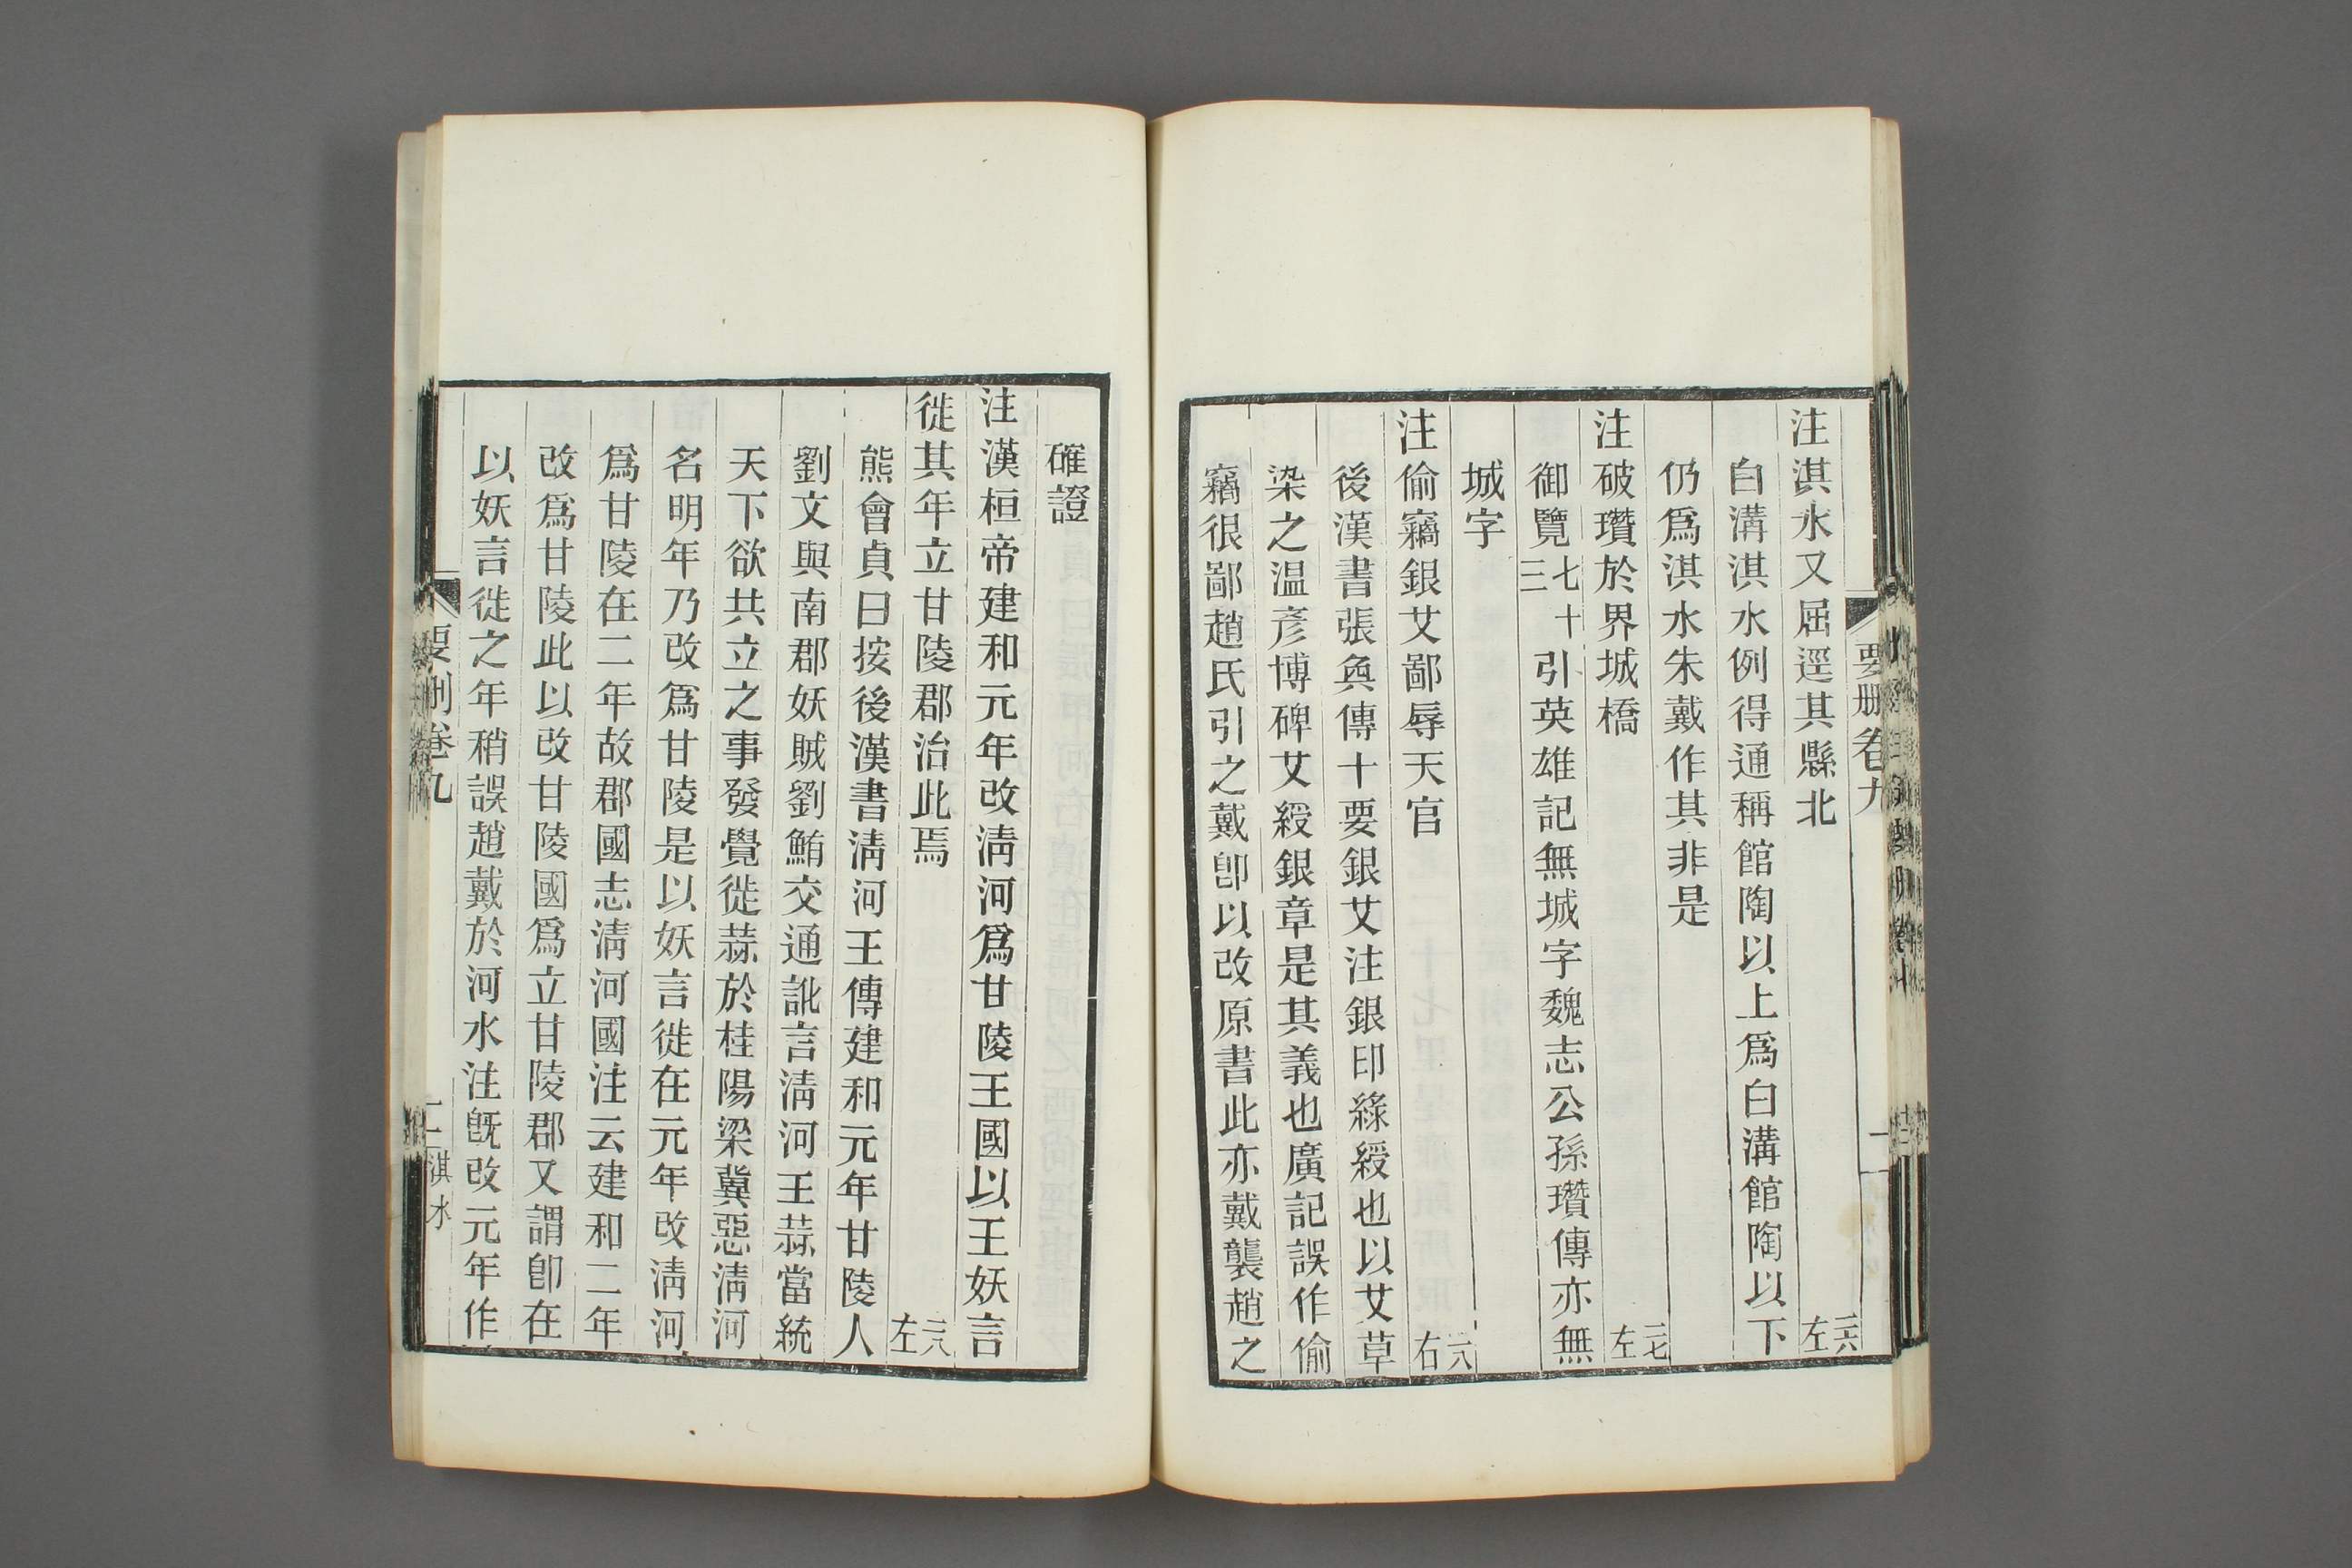 注淇水又屈逕其縣北 二六左
白溝淇水例得通稱館陶以上爲白溝館陶以下
仍爲淇水朱戴作其非是
注破瓚於界城橋 二七左
御覽七十三引英雄記無城字魏志公孫瓚傳亦無
城字
注偷竊銀艾鄙辱天官 二八右
後漢書張奐傳十要銀艾注銀印綠綬也以艾草
染之温彥博碑艾綬銀章是其義也廣記誤作偷
竊很鄙趙氏引之戴卽以改原書此亦戴襲趙之
要刪卷九
確證
注漢桓帝建和元年改淸河爲甘陵王國以王妖言
徙其年立甘陵郡治此焉 二八左
熊會貞曰按後漢書淸河王傳建和元年甘陵人
劉文與南郡妖賊劉鮪交通訛言淸河王蒜當統
天下欲共立之事發覺徙蒜於桂陽梁冀惡淸河
名明年乃改爲甘陵是以妖言徙在元年改淸河
爲甘陵在二年故郡國志淸河國注云建和二年
改爲甘陵此以改甘陵國爲立甘陵郡又謂卽在
以妖言徙之年稍誤趙戴於河水注旣改元年作
要刪卷九 淇水